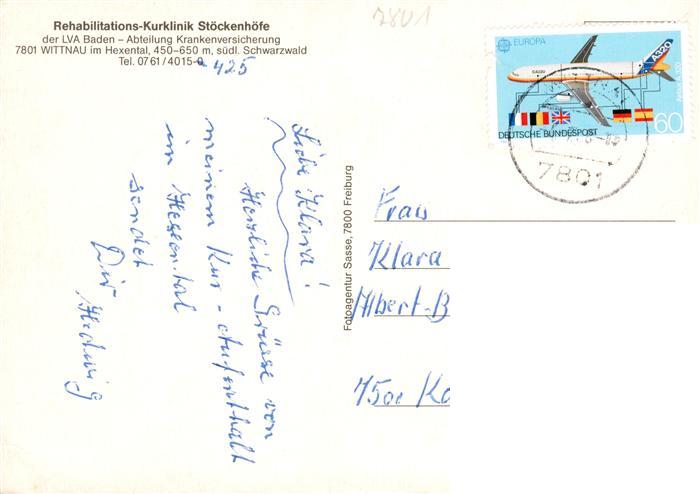 Rehabilitations-Kurklinik Stöckenhöfe
der LVA Baden – Abteilung Krankenversicherung
7801 WITTNAU im Hexental, 450–650 m, südl. Schwarzwald
Tel. 0761/4015-0
-425
7801
EUROPA
A320
DEUTSCHE BUNDESPOST
60
7801
Liebe Klara!
Herzliche Grüsse von
meinem Kur-Aufenthalt
im Hexental
sendet
Dir Hedwig
Fotoagentur Sasse, 7800 Freiburg
Frau
Klara
Albert-B
7500 Ka